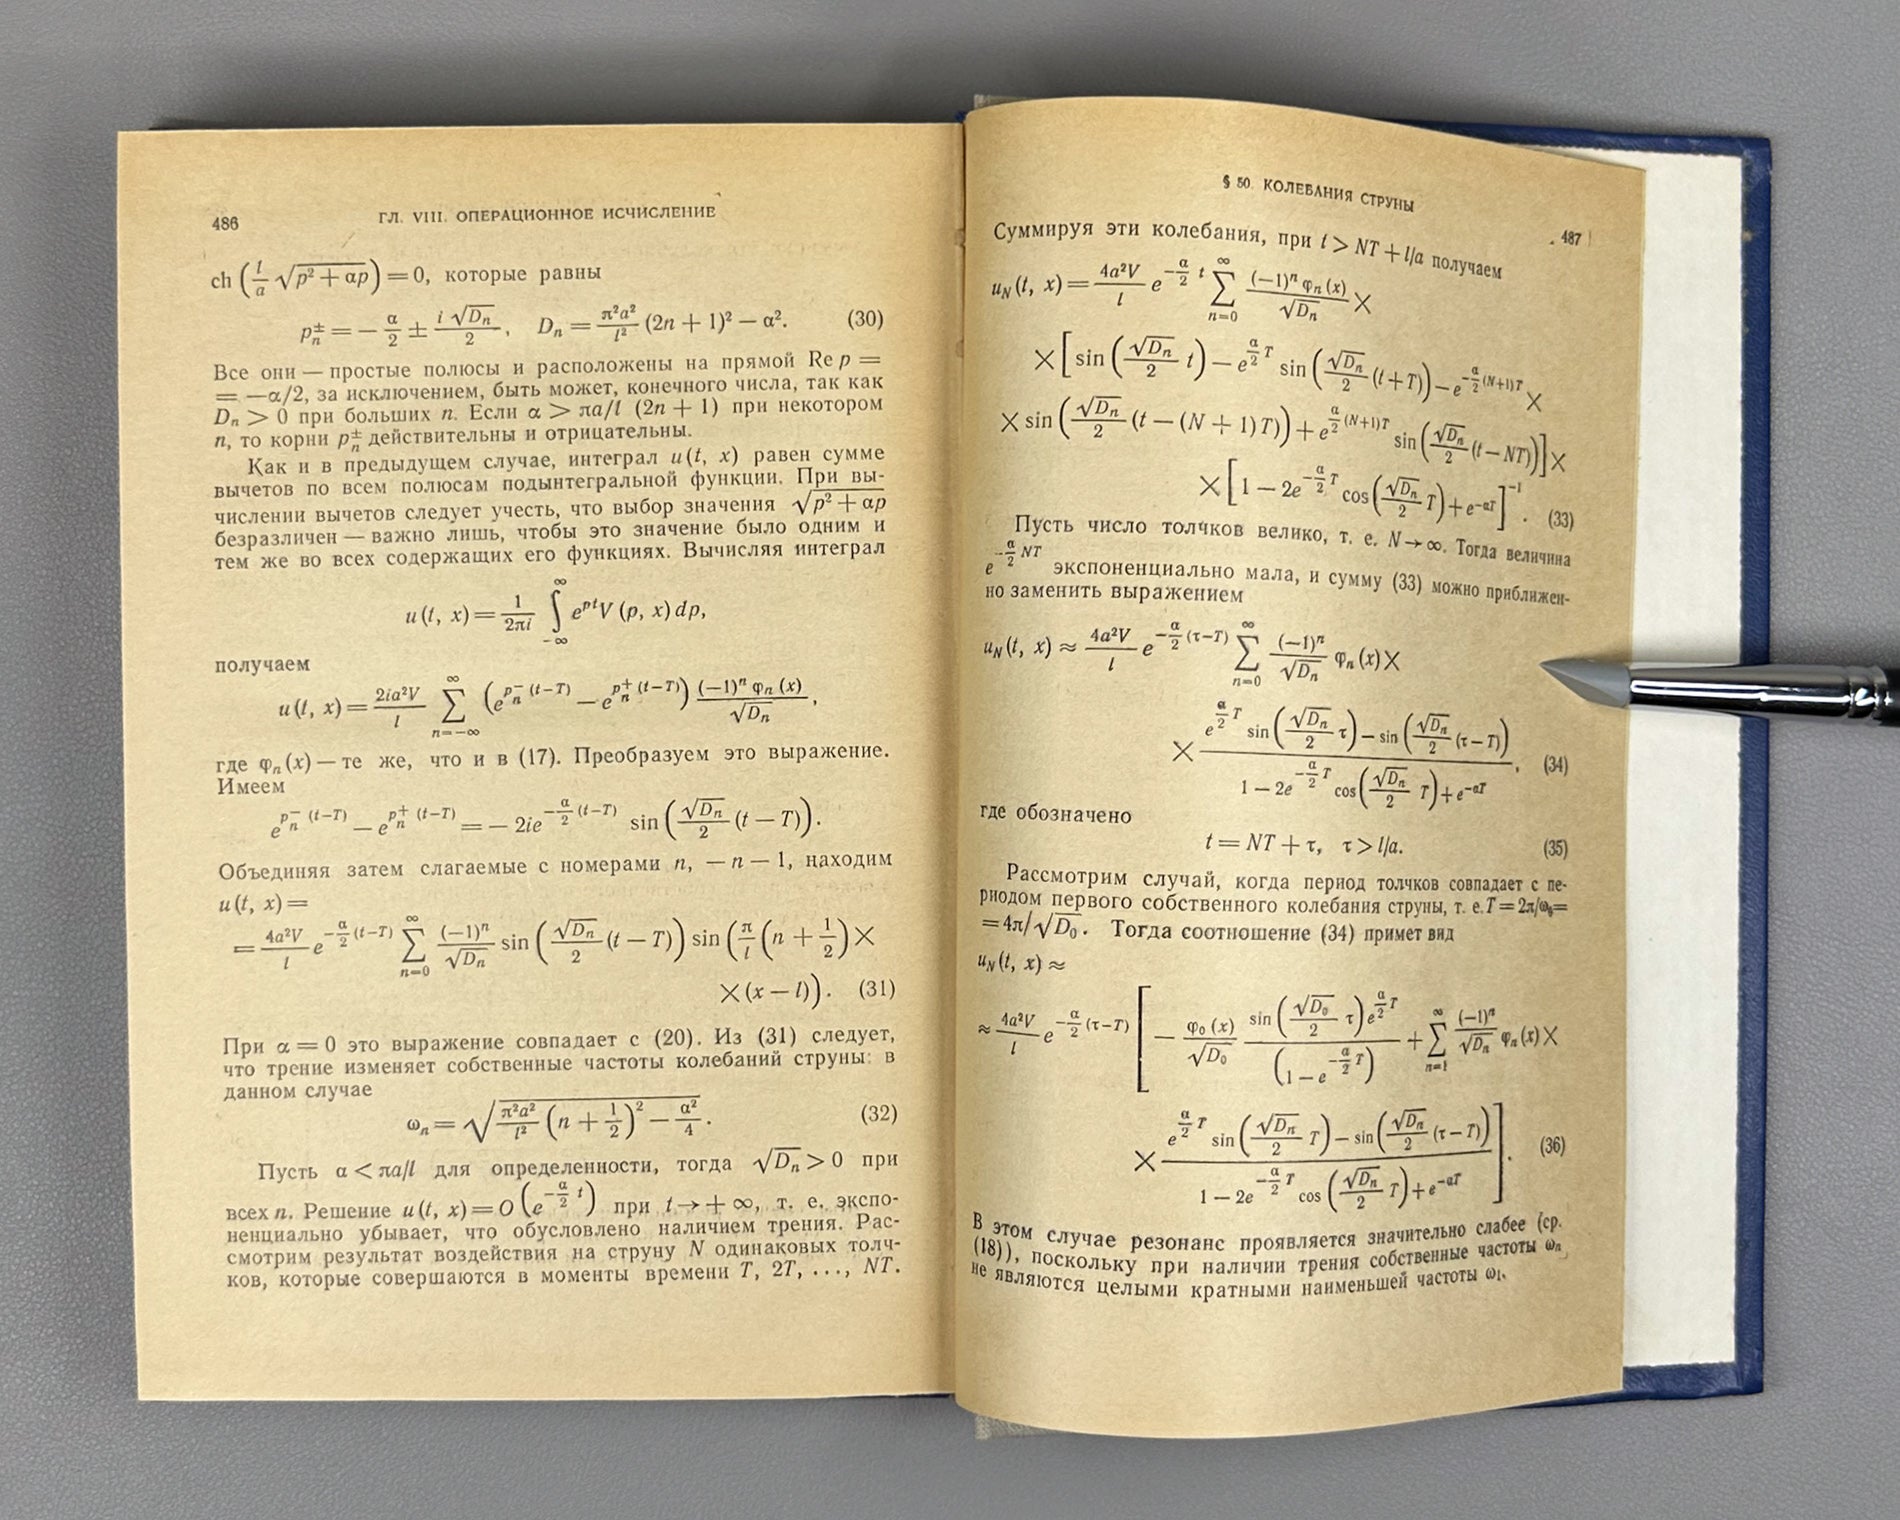 486
ГЛ. VIII. ОПЕРАЦИОННОЕ ИСЧИСЛЕНИЕ
ch (l/a √(p² + αp)) = 0, которые равны
pₙ± = − α/2 ± i√Dₙ/2, Dₙ = π²a²/l² (2n + 1)² − α². (30)
Все они — простые полюсы и расположены на прямой Re p =
= −α/2, за исключением, быть может, конечного числа, так как
Dₙ > 0 при больших n. Если α > πa/l (2n + 1) при некотором
n, то корни pₙ± действительны и отрицательны.
Как и в предыдущем случае, интеграл u(t, x) равен сумме
вычетов по всем полюсам подынтегральной функции. При вы-
числении вычетов следует учесть, что выбор значения √(p² + αp)
безразличен — важно лишь, чтобы это значение было одним и
тем же во всех содержащих его функциях. Вычисляя интеграл
u(t, x) = 1/(2πi) ∫_{−∞}^{∞} e^{pt} V(p, x) dp,
получаем
u(t, x) = 2ia²V/l ∑_{n=−∞}^{∞} (e^{pₙ⁻(t−T)} − e^{pₙ⁺(t−T)}) (−1)ⁿ φₙ(x)/√Dₙ,
где φₙ(x) — те же, что и в (17). Преобразуем это выражение.
Имеем
e^{pₙ⁻(t−T)} − e^{pₙ⁺(t−T)} = − 2ie^{−α/2 (t−T)} sin (√Dₙ/2 (t − T)).
Объединяя затем слагаемые с номерами n, − n − 1, находим
u(t, x) =
= 4a²V/l e^{−α/2 (t−T)} ∑_{n=0}^{∞} (−1)ⁿ/√Dₙ sin (√Dₙ/2 (t − T)) sin (π/l (n + 1/2) ×
× (x − l)). (31)
При α = 0 это выражение совпадает с (20). Из (31) следует,
что трение изменяет собственные частоты колебаний струны: в
данном случае
ωₙ = √(π²a²/l² (n + 1/2)² − α²/4). (32)
Пусть α < πa/l для определенности, тогда √Dₙ > 0 при
всех n. Решение u(t, x) = O (e^{−α/2 t}) при t → + ∞, т. е. экспо-
ненциально убывает, что обусловлено наличием трения. Рас-
смотрим результат воздействия на струну N одинаковых толч-
ков, которые совершаются в моменты времени T, 2T, ..., NT.
§ 50. КОЛЕБАНИЯ СТРУНЫ
487
Суммируя эти колебания, при t > NT + l/a получаем
u_N(t, x) = 4a²V/l e^{−α/2 t} ∑_{n=0}^{∞} (−1)ⁿ φₙ(x)/√Dₙ ×
× [sin (√Dₙ/2 t) − e^{α/2 T} sin (√Dₙ/2 (t + T)) − e^{−α/2 (N+1)T} ×
× sin (√Dₙ/2 (t − (N + 1) T)) + e^{α/2 (N+1)T} sin (√Dₙ/2 (t − NT))] ×
× [1 − 2e^{−α/2 T} cos (√Dₙ/2 T) + e^{−αT}]⁻¹. (33)
Пусть число толчков велико, т. е. N → ∞. Тогда величина
e^{−α/2 NT} экспоненциально мала, и сумму (33) можно приближен-
но заменить выражением
u_N(t, x) ≈ 4a²V/l e^{−α/2 (τ−T)} ∑_{n=0}^{∞} (−1)ⁿ/√Dₙ φₙ(x) ×
× (e^{α/2 T} sin (√Dₙ/2 τ) − sin (√Dₙ/2 (τ − T)))/(1 − 2e^{−α/2 T} cos (√Dₙ/2 T) + e^{−αT}), (34)
где обозначено
t = NT + τ, τ > l/a. (35)
Рассмотрим случай, когда период толчков совпадает с пе-
риодом первого собственного колебания струны, т. е. T = 2π/ω₀ =
= 4π/√D₀. Тогда соотношение (34) примет вид
u_N(t, x) ≈
≈ 4a²V/l e^{−α/2 (τ−T)} [− φ₀(x)/√D₀ sin (√D₀/2 τ) e^{α/2 T}/(1 − e^{−α/2 T}) + ∑_{n=1}^{∞} (−1)ⁿ/√Dₙ φₙ(x) ×
× (e^{α/2 T} sin (√Dₙ/2 T) − sin (√Dₙ/2 (τ − T)))/(1 − 2e^{−α/2 T} cos (√Dₙ/2 T) + e^{−αT})]. (36)
В этом случае резонанс проявляется значительно слабее (ср.
(18)), поскольку при наличии трения собственные частоты ωₙ
не являются целыми кратными наименьшей частоты ω₁.